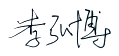 李弘博